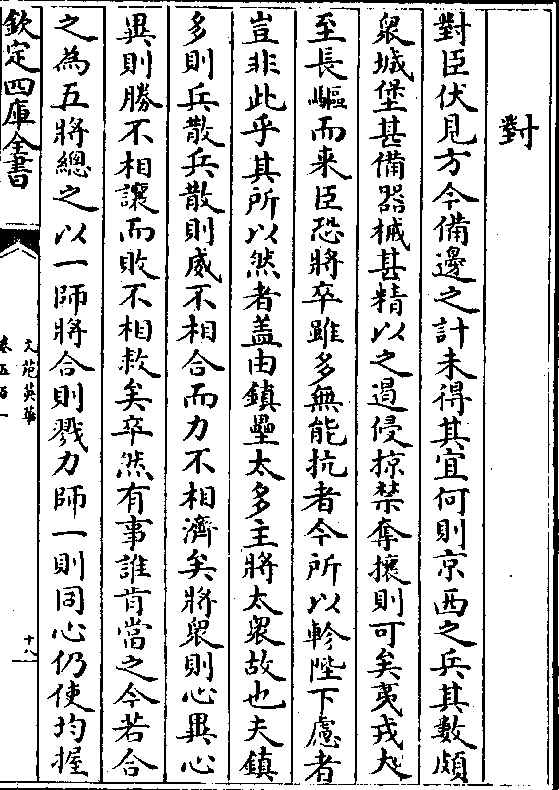 對
對臣伏見方今備邊之計未得其宜何則京西之兵其數頗
衆城堡甚備器械甚精以之遏侵掠禁奪攘則可矣夷戎大
至長驅而来臣恐將卒雖多無能抗者今所以軫陛下慮者
豈非此乎其所以然者蓋由鎮壘太多主將太衆故也夫鎮
多則兵散兵散則威不相合而力不相濟矣將衆則心異心
異則勝不相讓而敗不相救矣卒然有事誰肯當之今若合
之為五將總之以一師將合則戮力師一則同心仍使均握
欽定四庫全書
文苑英華
卷五百一
十八